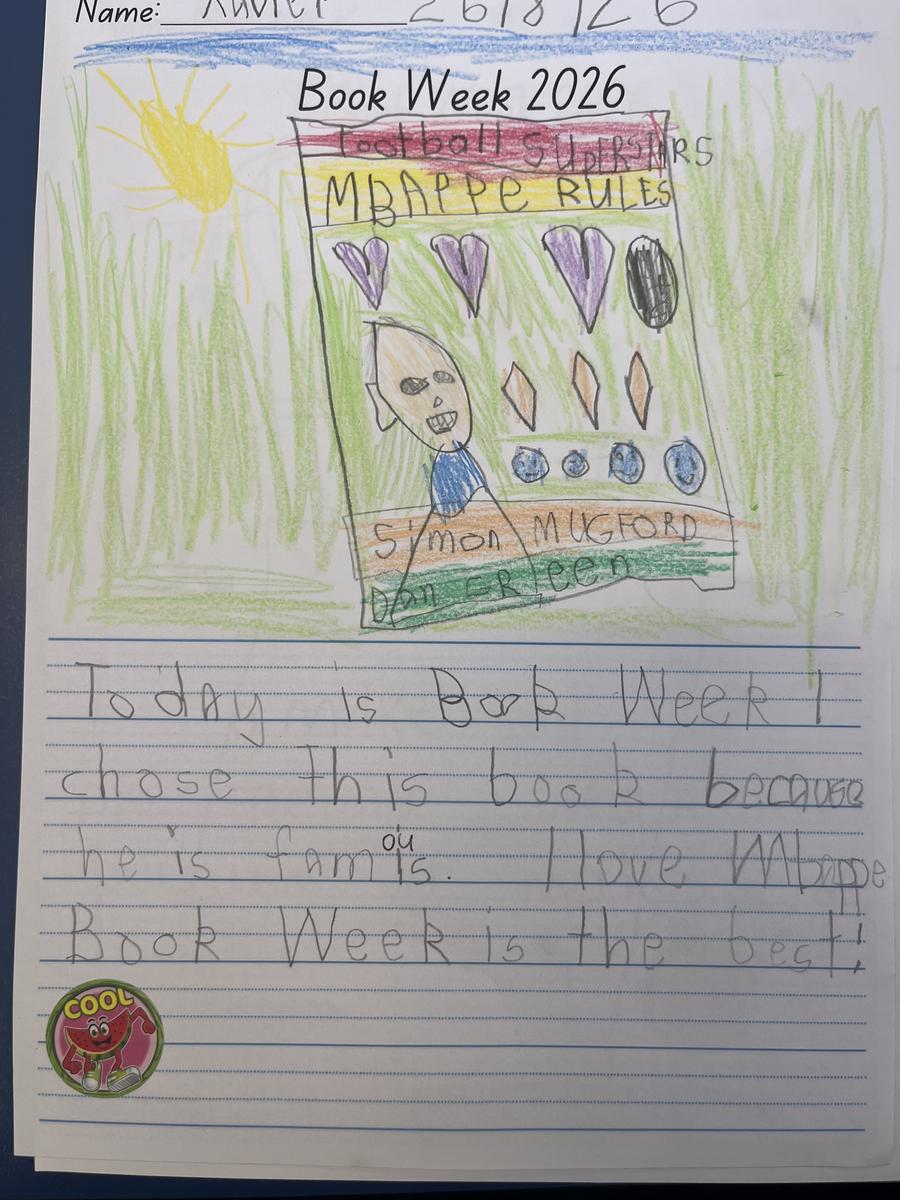 Name: Xavier 26/8/26
Book Week 2026
Football SUpERSTARS
MBAPPe RULES
Simon MUGFORD
Dan GReen
Today is Book Week I
chose this book because
ou
he is famis. I love Mbappe
Book Week is the best!
COOL